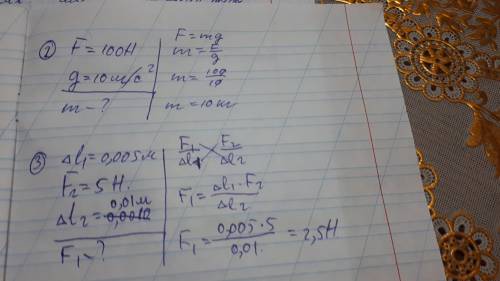 ② F = 100Н
g = 10 м/с²
m - ?
F = mg
m = F/g
m = 100/10
m = 10 кг
③ Δl₁ = 0,005 м
F₂ = 5 Н.
Δl₂ = 0,01 м
F₁ - ?
F₁/Δl₁ F₂/Δl₂
F₁ = Δl₁ · F₂/Δl₂
F₁ = 0,005 · 5/0,01. = 2,5Н